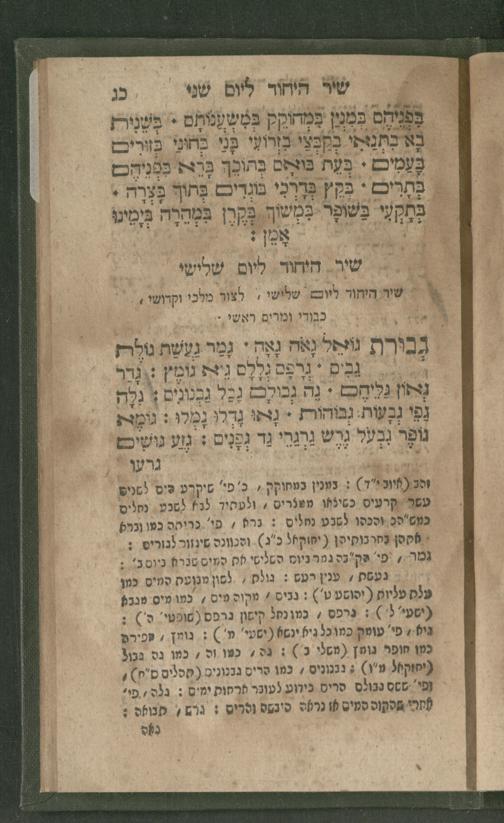 שיר היחוד ליום שני כג
בִּפְנֵיהֶם בְּמִנְיַן בִּמְחוֹקֵק בְּמִשְׁעֲנוֹתָם · בְּשֵׁנִית
בֹּא בִּתְנָאַי בְּקַבְּצִי בִזְרוֹעִי בָּנַי בְּחוּנַי בְּזוּרִים
בָּעַמִּים · בְּעֵת בּוֹאָם בְּתוֹכֵךְ בָּרֵא בִּפְנֵיהֶם
בְּתָרִים · בְּקֵץ בְּדָרְכִי בוֹגְדִים בְּתוֹךְ בָּצְרָה ·
בְּתָקְעִי בַּשּׁוֹפָר בִּמְשׁוֹךְ בְּקֶרֶן בִּמְהֵרָה בְּיָמֵינוּ
אָמֵן :
שיר היחוד ליום שלישי
שיר היחוד ליום שלישי , לצור מלכי וקדושי ,
כבודי ומרים ראשי ·
גְּבוּרַת גּוֹאֵל גָּאֹה גָּאָה · גָּמַר גַּעֲשַׁת גּוֹלַת
גֵּבִים · גְּרָפָם גְּלָלָם גֵּיא גּוּמֶץ : גָּדַר
גְּאוֹן גַּלֵּיהֶם · גֵּה גְּבוּלָם גְּבַל גַּבְנוּנִים : גִּלָּה
גַּפֵּי גְבָעוֹת גְּבוֹהוֹת · גָּאוּ גָּדְלוּ גָּמְלוּ : גּוֹמֶא
גּוֹפֶר גִּבְעֹל גֶּרֶשׂ גַּרְגְּרֵי גַד גְּפָנִים : גֶּזַע גּוּשִׁים
גרעו
זהב (איוב י"ד) : במנין במחוקק , כ'פי' שיקרע הים לשנים
עשר קרעים כשילאו ממצרים , ולעתיד לבא לשבע נחלים
כמש"הכ והכהו לשבע נחלים : ברא , פי' כריתה כמו וברא
אתהן בחרבותיהן (יחזקאל כ"ג) והכוונה שיגזור לגזרים :
גמר , פי' הק"בה גמר ביום השלישי את המים שברא ביום ב' :
געשת , ענין רעש : גולת , לשון מבועת המים כמו
גולת עליות (יהושע ט') : גבים , מקוה מים , כמו מים מגבא
(ישעי' ל') : גרפם , כמו נחל קישון גרפם (שופטי' ה') :
גיא , פי' עומק כמו כל גיא ינשא (ישעי' מ') : גומץ , חפירה
כמו חופר גומץ (משלי כ') : גה , כמו זה , כמו גה גבול
(יחזקאל מ"ז) : גבנונים , כמו הרים גבנונים (תהלים ס"ח) ,
ופי' ששם גבולם הרים כידוע לעובר ארחות ימים : גלה , פי'
אחרי שהקוה המים אז נראה היבשה והרים : גרש , תבואה :
גאה